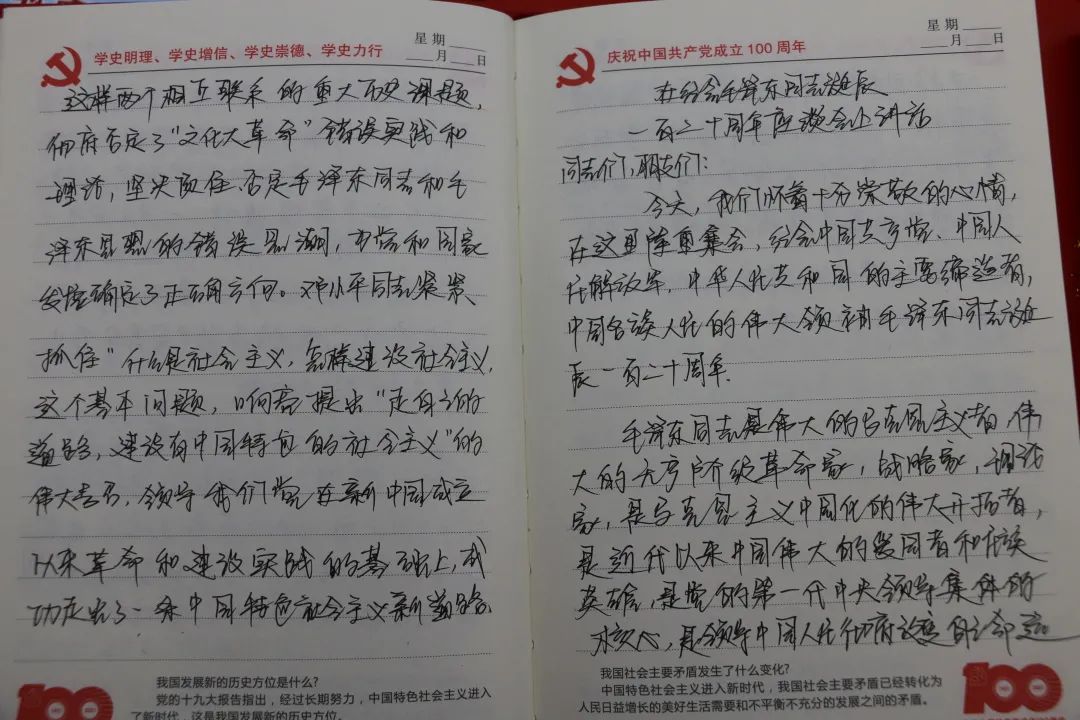 学史明理、学史增信、学史崇德、学史力行
星期
月 日
这样两个相互联系的重大历史课题,
彻底否定了“文化大革命”错误实践和
理论,坚决顶住否定毛泽东同志和毛
泽东思想的错误思潮,为党和国家
发展确定了正确方向。邓小平同志紧紧
抓住“什么是社会主义,怎样建设社会主义,
这个基本问题,响亮提出“走自己的
道路,建设有中国特色的社会主义”的
伟大号召,领导我们党在新中国成立
以来革命和建设实践的基础上,成
功走出了一条中国特色社会主义新道路.
我国发展新的历史方位是什么?
党的十九大报告指出,经过长期努力,中国特色社会主义进入
了新时代,这是我国发展新的历史方位。
100
庆祝中国共产党成立100周年
星期
月 日
在纪念毛泽东同志诞辰
一百二十周年座谈会上讲话
同志们,朋友们:
今天,我们怀着十分崇敬的心情,
在这里隆重集会,纪念中国共产党、中国人
民解放军,中华人民共和国的主要缔造者,
中国各族人民的伟大领袖毛泽东同志诞
辰一百二十周年.
毛泽东同志是伟大的马克思主义者,伟
大的无产阶级革命家,战略家,理论
家,是马克思主义中国化的伟大开拓者,
是近代以来中国伟大的爱国者和民族
英雄,是党的第一代中央领导集体的
核心,是领导中国人民彻底改变自己命运
我国社会主要矛盾发生了什么变化?
中国特色社会主义进入新时代,我国社会主要矛盾已经转化为
人民日益增长的美好生活需要和不平衡不充分的发展之间的矛盾。
100